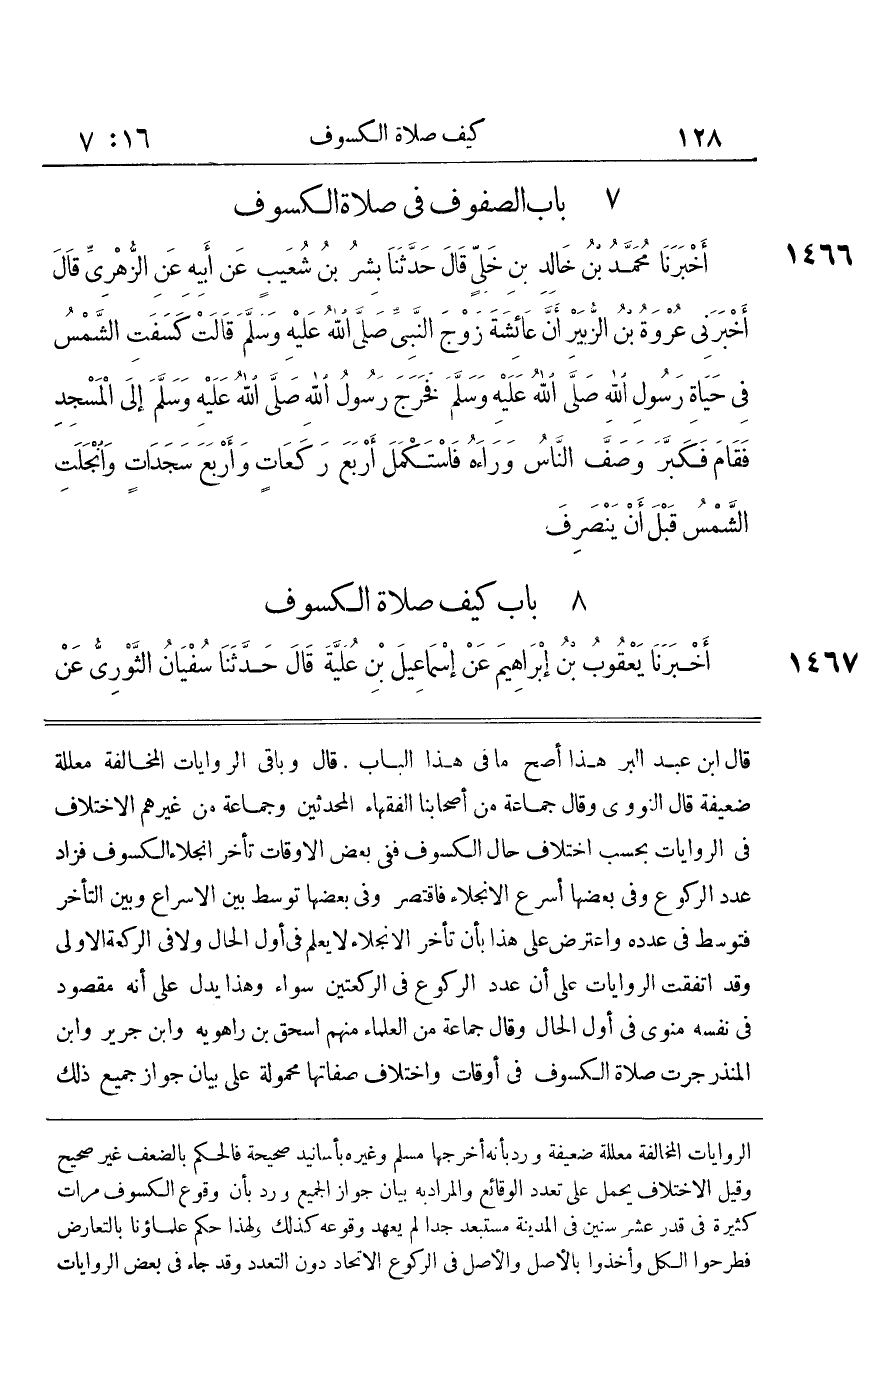 ١٢٨ كيف صلاة الكسوف ١٦: ٧
٧ باب الصفوف فى صلاة الكسوف
١٤٦٦ أَخْبَرَنَا مُحَمَّدُ بْنُ خَالِدِ بنِ خَلِيٍّ قَالَ حَدَّثَنَا بِشْرُ بنُ شُعَيبٍ عَن أَبِيهِ عَنِ الزُّهْرِىِّ قَالَ
أَخْبَرَنِى عُرْوَةُ بْنُ الزُّبَيْرِ أَنَّ عَائِشَةَ زَوْجَ النَّبِىِّ صَلَّى اللهُ عَلَيْهِ وَسَلَّمَ قَالَتْ كَسَفَتِ الشَّمْسُ
فِى حَيَاةِ رَسُولِ اللهِ صَلَّى اللهُ عَلَيْهِ وَسَلَّمَ فَخَرَجَ رَسُولُ اللهِ صَلَّى اللهُ عَلَيْهِ وَسَلَّمَ إِلَى الْمَسْجِدِ
فَقَامَ فَكَبَّرَ وَصَفَّ النَّاسُ وَرَاءَهُ فَاسْتَكْمَلَ أَرْبَعَ رَكَعَاتٍ وَأَرْبَعَ سَجَدَاتٍ وَانْجَلَتِ
الشَّمْسُ قَبْلَ أَنْ يَنْصَرِفَ
٨ باب كيف صلاة الكسوف
١٤٦٧ أَخْبَرَنَا يَعْقُوبُ بْنُ إِبْرَاهِيمَ عَنْ إِسْمَاعِيلَ بْنِ عُلَيَّةَ قَالَ حَدَّثَنَا سُفْيَانُ الثَّوْرِىُّ عَنْ
قال ابن عبد البر هذا أصح ما فى هذا الباب . قال وباقى الروايات المخالفة معللة
ضعيفة قال النووى وقال جماعة من أصحابنا الفقهاء المحدثين وجماعة من غيرهم الاختلاف
فى الروايات بحسب اختلاف حال الكسوف ففى بعض الاوقات تأخر انجلاء الكسوف فزاد
عدد الركوع وفى بعضها أسرع الانجلاء فاقتصر وفى بعضها توسط بين الاسراع وبين التأخر
فتوسط فى عدده واعترض على هذا بأن تأخر الانجلاء لايعلم فى أول الحال ولا فى الركعة الاولى
وقد اتفقت الروايات على أن عدد الركوع فى الركعتين سواء وهذا يدل على أنه مقصود
فى نفسه منوى فى أول الحال وقال جماعة من العلماء منهم اسحق بن راهويه وابن جرير وابن
المنذر جرت صلاة الكسوف فى أوقات واختلاف صفاتها محمولة على بيان جواز جميع ذلك
الروايات المخالفة معللة ضعيفة ورد بأنه أخرجها مسلم وغيره بأسانيد صحيحة فالحكم بالضعف غير صحيح
وقيل الاختلاف يحمل على تعدد الوقائع والمراد به بيان جواز الجميع ورد بأن وقوع الكسوف مرات
كثيرة فى قدر عشر سنين فى المدينة مستبعد جدا لم يعهد وقوعه كذلك ولهذا حكم علماؤنا بالتعارض
فطرحوا الكل وأخذوا بالأصل والأصل فى الركوع الاتحاد دون التعدد وقد جاء فى بعض الروايات